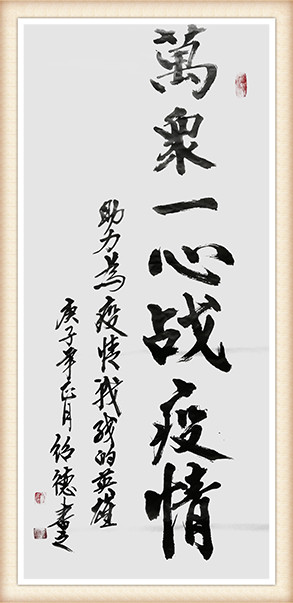 萬衆一心战疫情
助力為疫情戰线的英雄
庚子年正月绍德書之